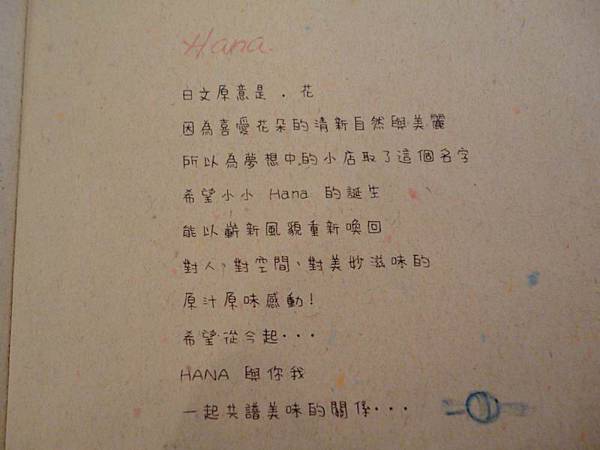 Hana
日文原意是．花
因為喜愛花朵的清新自然與美麗
所以為夢想中的小店取了這個名字
希望小小 Hana 的誕生
能以嶄新風貌重新喚回
對人、對空間、對美妙滋味的
原汁原味感動!
希望從今起···
HANA 與你我
一起共譜美味的關係···